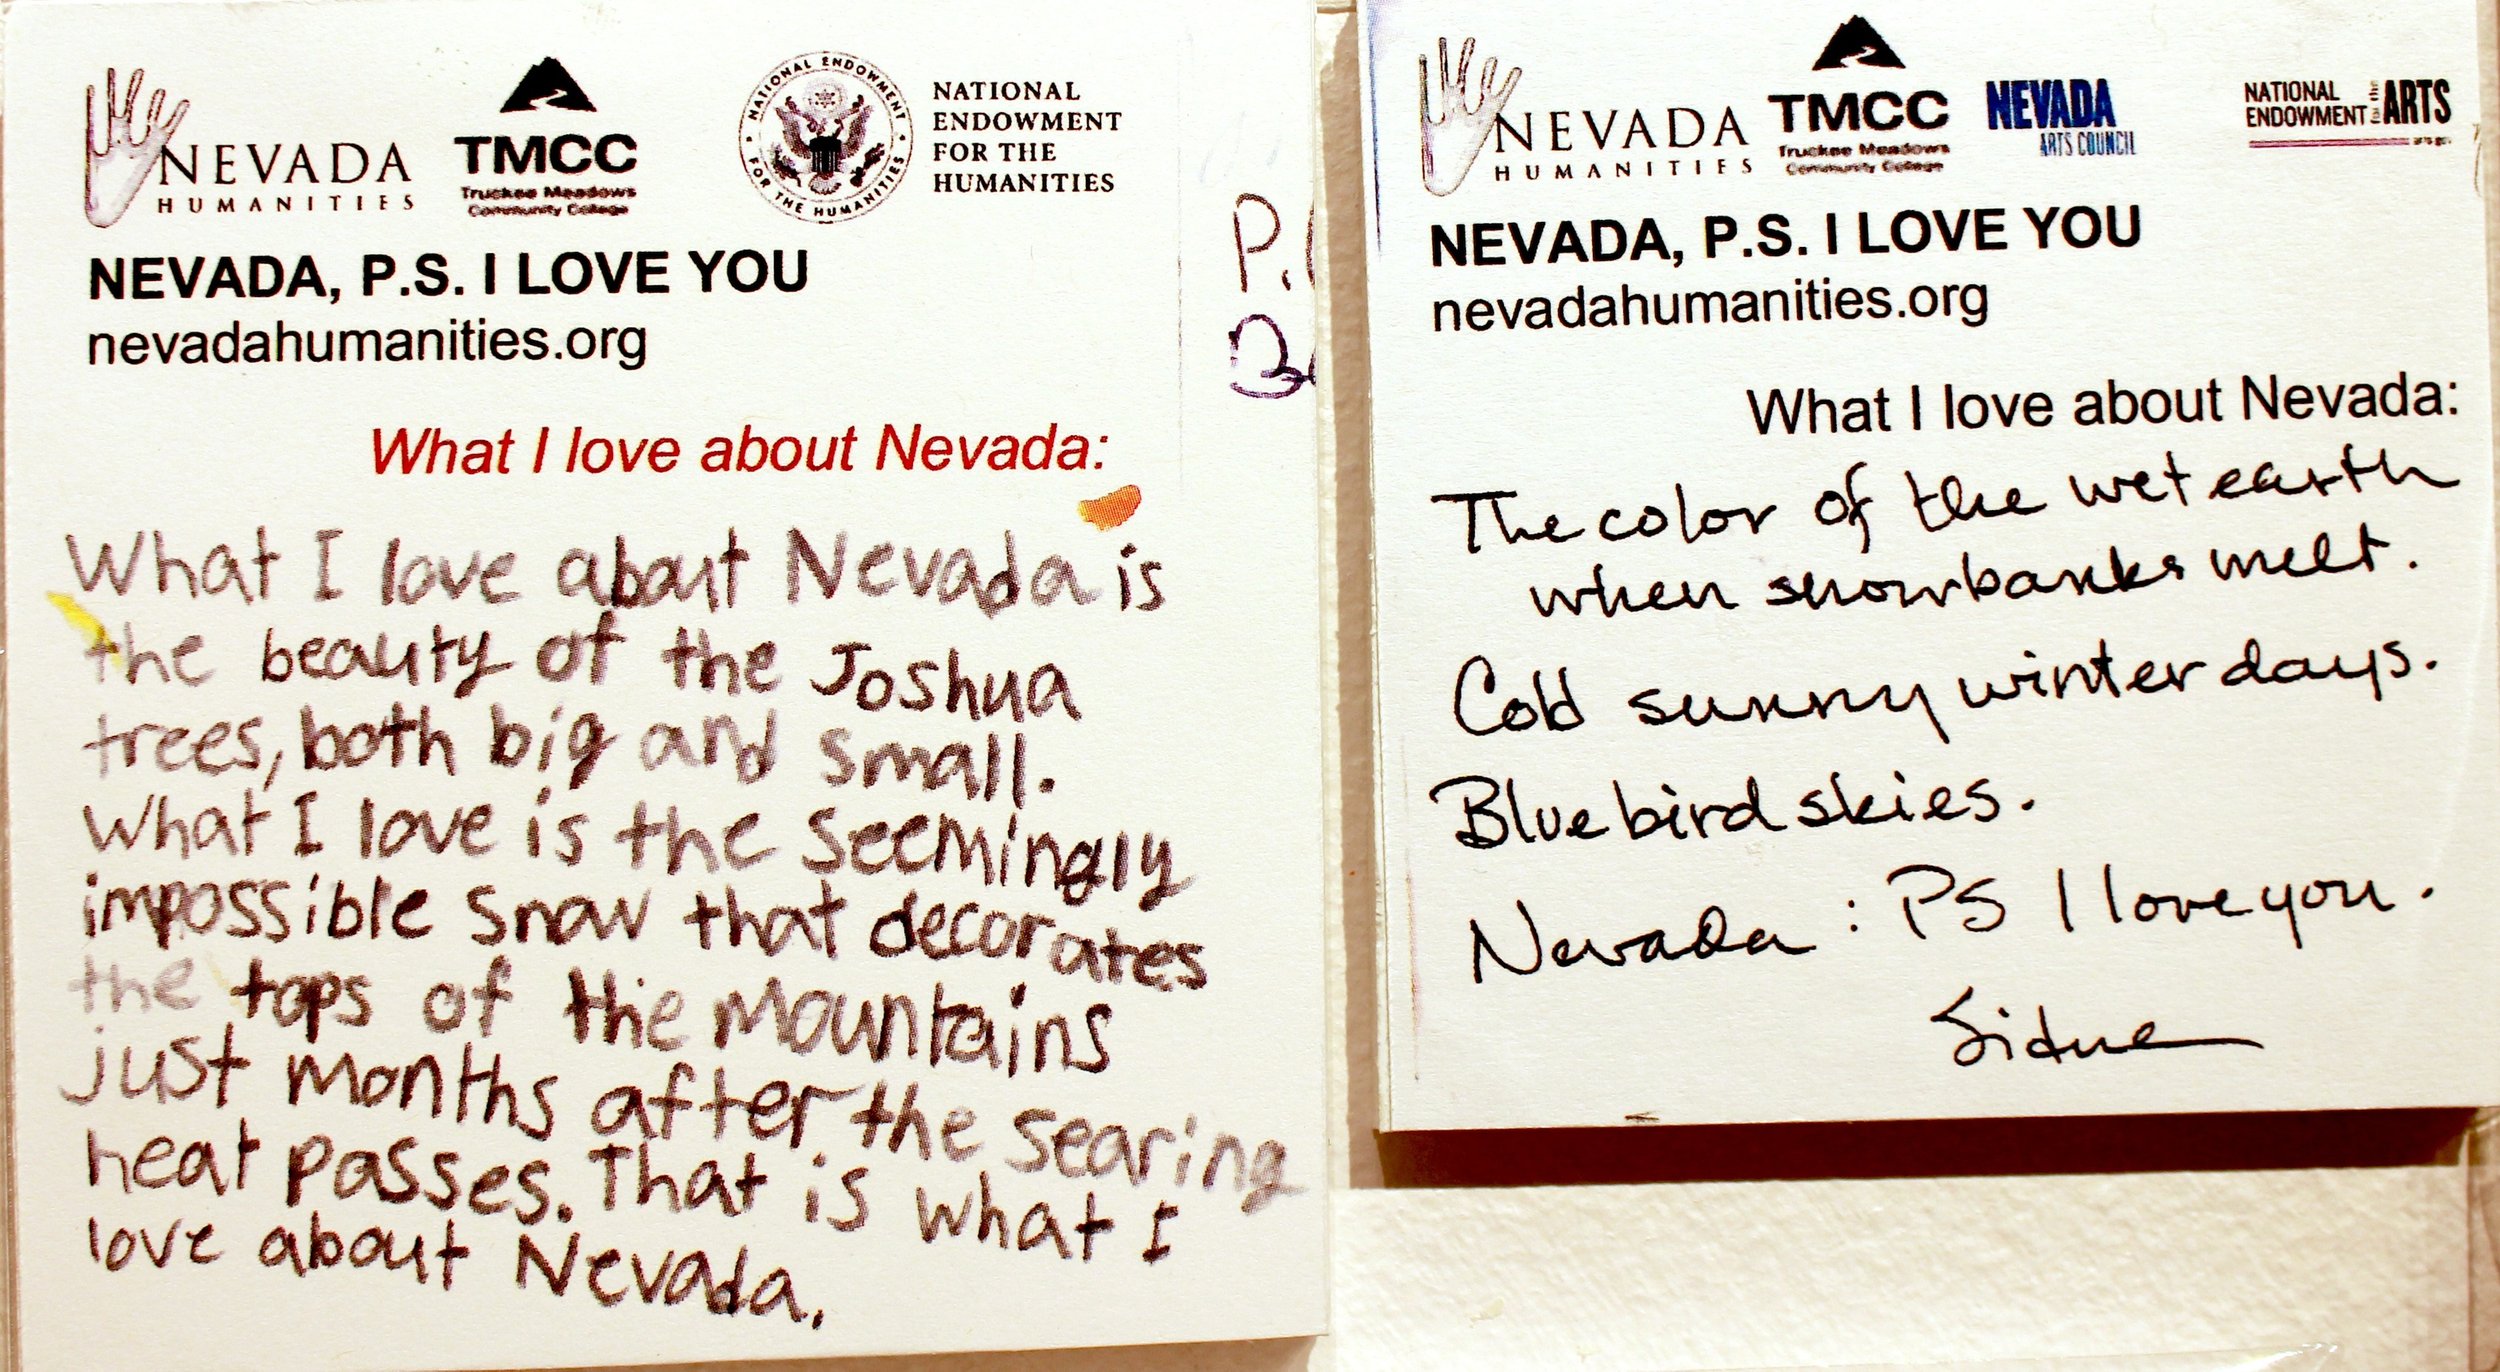 NEVADA
HUMANITIES
TMCC
Truckee Meadows
Community College
NATIONAL ENDOWMENT FOR THE HUMANITIES
NATIONAL
ENDOWMENT
FOR THE
HUMANITIES
NEVADA, P.S. I LOVE YOU
nevadahumanities.org
P.
What I love about Nevada:
What I love about Nevada is
the beauty of the Joshua
trees, both big and small.
What I love is the seemingly
impossible snow that decorates
the tops of the mountains
just months after the searing
heat passes. That is what I
love about Nevada.
NEVADA
HUMANITIES
TMCC
Truckee Meadows
Community College
NEVADA
ARTS COUNCIL
NATIONAL
ENDOWMENT for the ARTS
NEVADA, P.S. I LOVE YOU
nevadahumanities.org
What I love about Nevada:
The color of the wet earth
when snowbanks melt.
Cold sunny winter days.
Bluebird skies.
Nevada: PS I love you.
Sidne